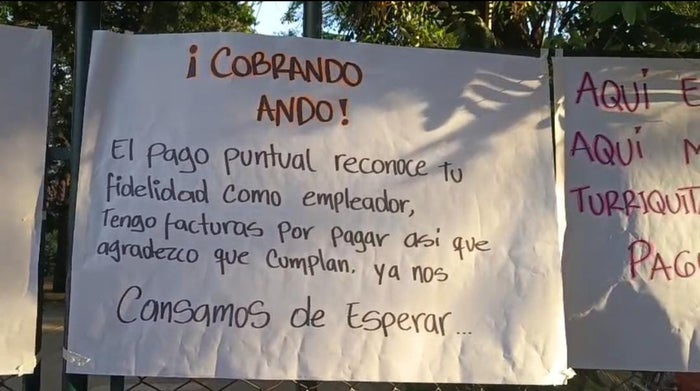 ¡COBRANDO
ANDO!
El pago puntual reconoce tu
fidelidad como empleador,
Tengo facturas por pagar asi que
agradezco que cumplan, ya nos
Cansamos de Esperar...
AQUÍ E
AQUÍ M
TURRIQUIT
PAG